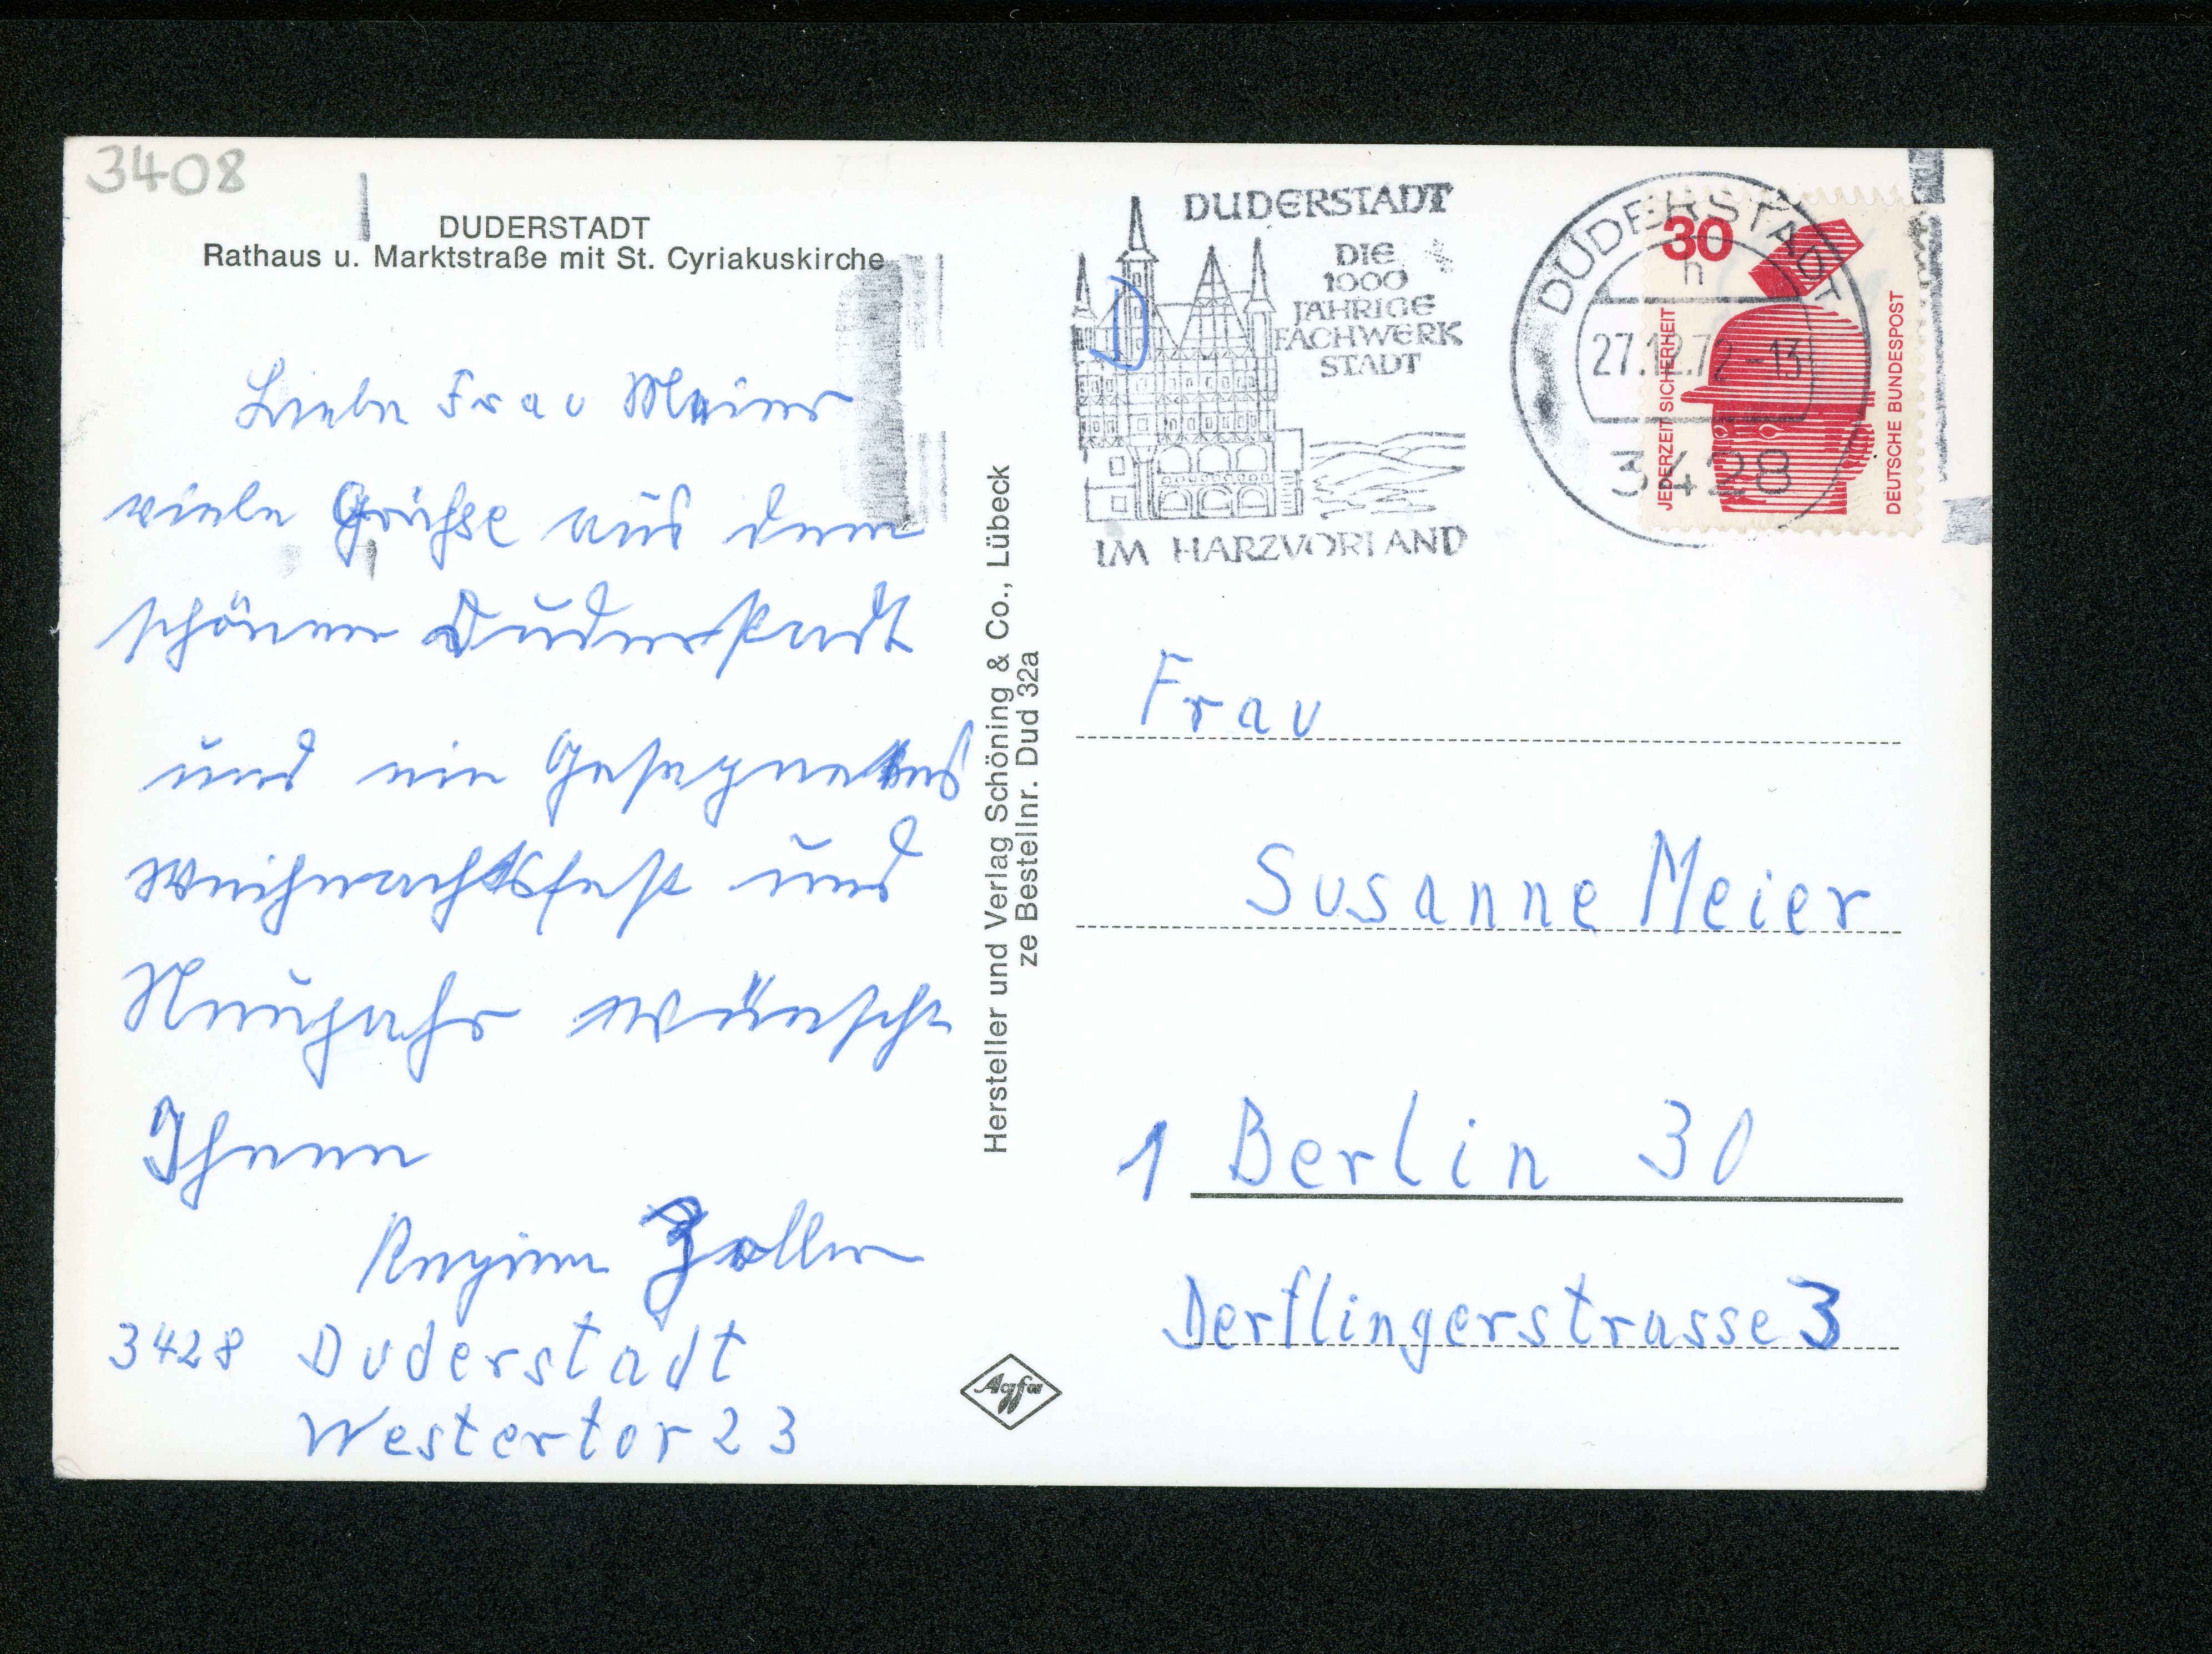 3408
DUDERSTADT
Rathaus u. Marktstraße mit St. Cyriakuskirche
Liebe Frau Meier
viele Grühse aus dem
schönen Duderstadt
und ein Gesegnetes
Weihnachtsfest und
Neujahr wünscht
Ihnen
Regine Zoller
3428 Duderstadt
Westertor 23
Hersteller und Verlag Schöning & Co., Lübeck
ze Bestellnr. Dud 32a
Agfa
DUDERSTADT
DIE
1000
JÄHRIGE
FACHWERK
STADT
IM HARZVORLAND
DUDERSTADT
h
27.12.72-13
3428
30
JEDERZEIT SICHERHEIT
DEUTSCHE BUNDESPOST
Frau
Susanne Meier
1 Berlin 30
Derflingerstrasse 3